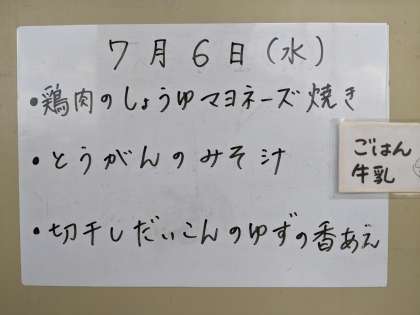 7月6日(水)
・鶏肉のしょうゆマヨネーズ焼き
・とうがんのみそ汁
・切干しだいこんのゆずの香あえ
ごはん
牛乳